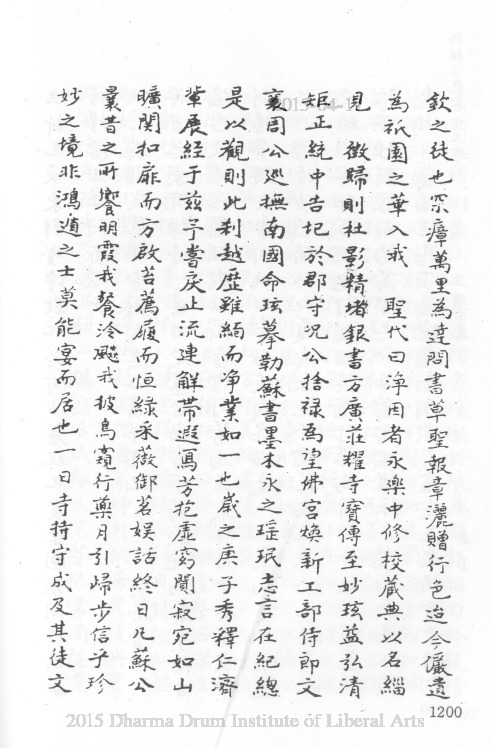 欽之徒也眾瘴萬里為達問書草聖報章灑贈行色迨今儼遺
為祇園之華入我 聖代曰淨因者永樂中修校藏典以名緇
見 徵歸則杜影精堵銀書方廣莊耀寺寶傳至妙玹益弘清
矩正統中告圮於郡守況公捨祿為望佛宮煥新工部侍郎文
襄周公巡撫南國命玹摹勒蘇書墨本永之瑶珉志言在紀總
是以觀則此剎越歷雖緬而淨業如一也歲之庚子秀釋仁濟
輩展經于茲予嘗戾止流連解帶遐寫芳抱虛窈闃寂宛如山
曠関扣扉而方啟苔薦履而恒綠采薇御茗娛話終日凡蘇公
曩昔之所饗明霞我餐泠飈我披鳥窺行藥月引歸步信乎珍
妙之境非鴻遁之士莫能宴而居也一日寺持守成及其徒文
1200
2015 Dharma Drum Institute of Liberal Arts